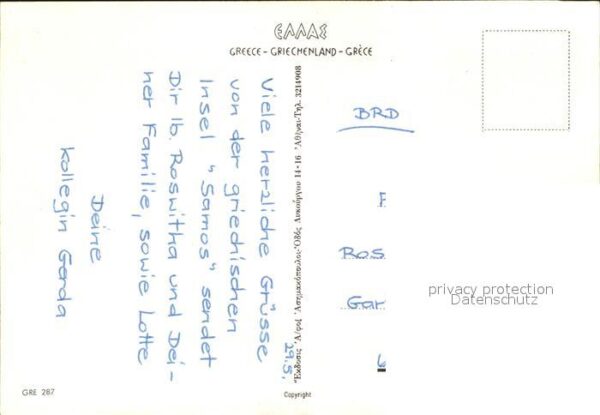 ΕΛΛΑΣ
GREECE - GRIECHENLAND - GRÈCE
29.5.
Viele herzliche Grüsse
von der griechischen
Insel "Samos" sendet
Dir lb. Roswitha und Dei-
ner Familie, sowie Lotte
Deine
Kollegin Gerda
Ἔκδοσις Ἀφοί Ἀσημακόπουλοι-Ὁδὸς Λυκούργου 14-16 Ἀθῆναι-Τηλ. 3214908
BRD
F
Ros
Gar
6
privacy protection
Datenschutz
GRE 287
Copyright